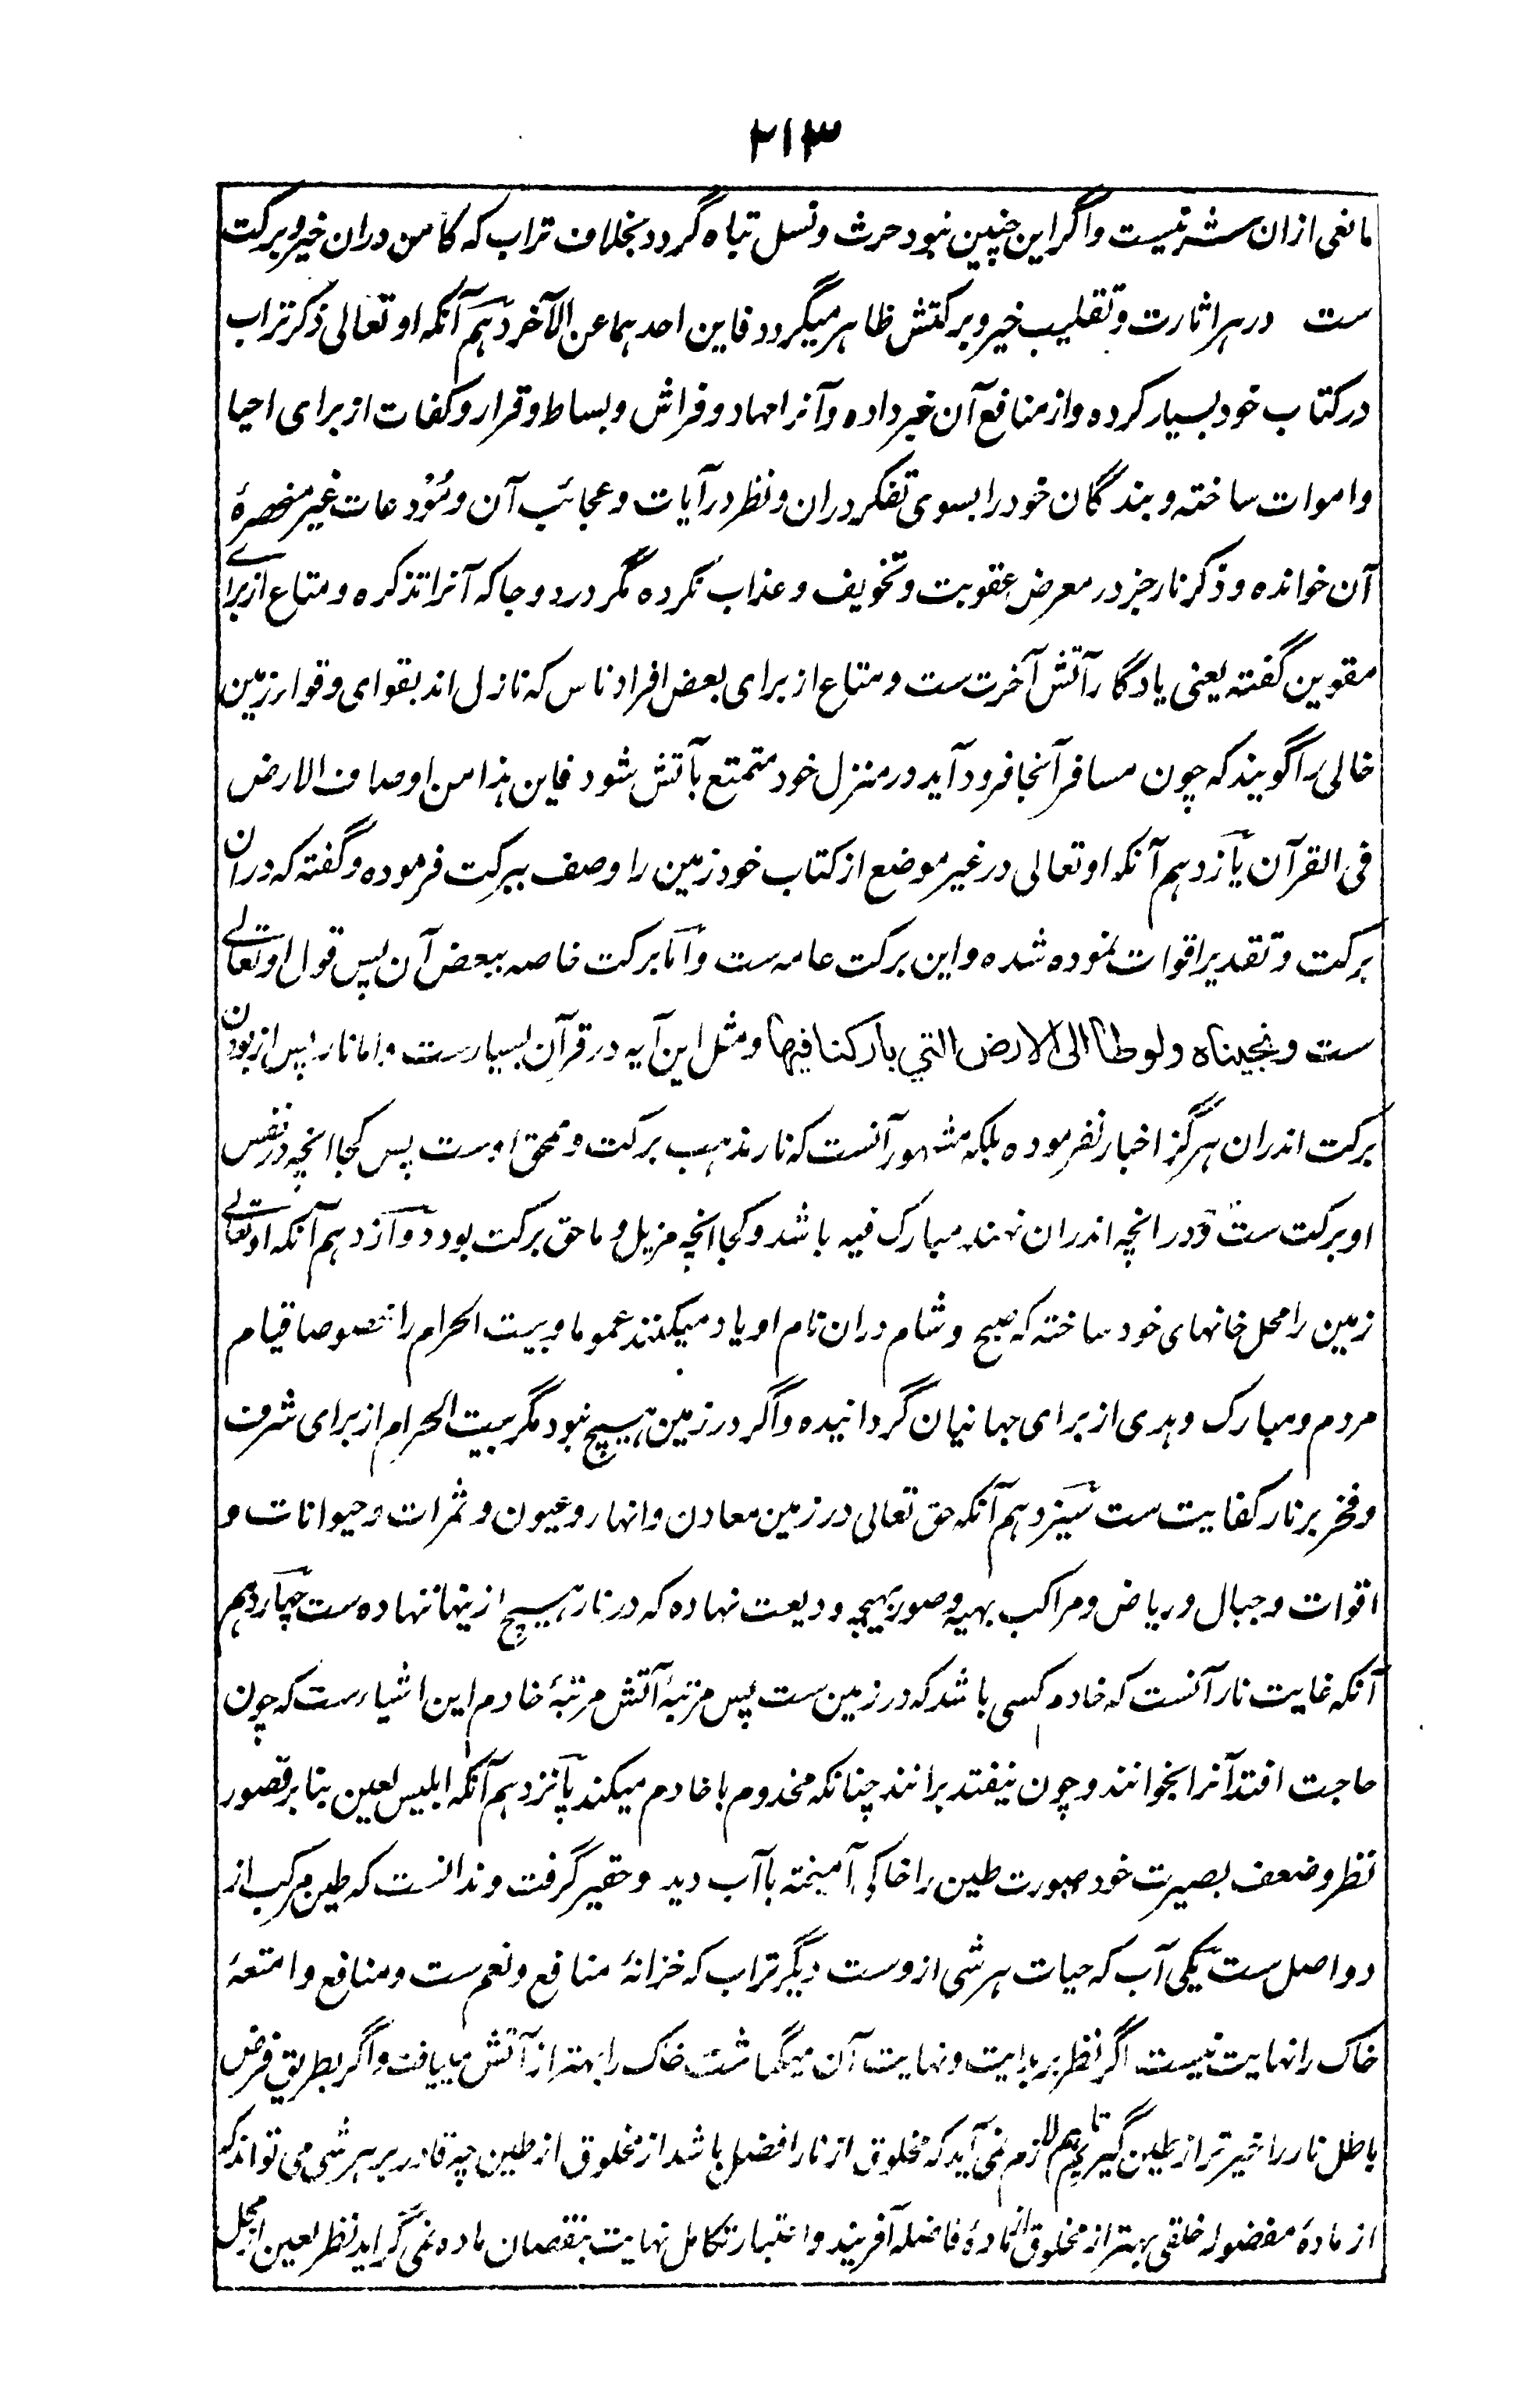 ۲۱۳
مانعی ازان شر نیست واگر این چنین نبود حرث ونسل تباه گردد بخلاف تراب که کامن دران خیر وبرکت
ست در هر اثارت وتقلیب خیر وبرکتش ظاهر میگردد فاین احدهما عن الآخر دهم آنکه اوتعالی ذکر تراب
در کتاب خود بسیار کرده واز منافع آن خبر داده وآنرا مهاد وفراش وبساط وقرار وکفات از برای احیا
واموات ساخته وبندگان خود را بسوی تفکر دران ونظر در آیات وعجائب آن ومودعات غیر منحصرۀ
آن خوانده وذکر نار جز در معرض عقوبت وتخویف وعذاب نکرده مگر در دو جا که آنرا تذکره ومتاع از برای
مقوین گفته یعنی یادگار آتش آخرت ست ومتاع از برای بعض افراد ناس که نازل اند بقوای وقوا، زمین
خالی را گویند که چون مسافر آنجا فرود آید در منزل خود متمتع بآتش شود فاین هذا من اوصاف الارض
فی القرآن یازدهم آنکه اوتعالی در غیر موضع از کتاب خود زمین را وصف ببرکت فرموده وگفته که دران
برکت وتقدیر اقوات نموده شده واین برکت عامه ست واما برکت خاصه ببعض آن پس قول اوتعالی
ست ونجیناه ولوطا الی الارض التي بارکنا فیها ومثل این آیه در قرآن بسیارست واما نار پس از بودن
برکت اندران هرگز اخبار نفرموده بلکه مشهور آنست که نار مذهب برکت وممحق اوست پس کجا انچه در نفس
او برکت ست ودر انچه اندران نهند مبارک فیه باشد وکجا انچه مزیل وماحق برکت بود دوازدهم آنکه اوتعالی
زمین را محل خانهای خود ساخته که صبح وشام دران نام او یاد میکنند عموما وبیت الحرام را خصوصا قیام
مردم ومبارک وهدی از برای جهانیان گردانیده واگر در زمین هیچ نبود مگر بیت الحرام از برای شرف
وفخر بر نار کفایت ست سیزدهم آنکه حق تعالی در زمین معادن وانهار وعیون وثمرات وحیوانات و
اقوات وجبال وریاض ومراکب بهیه وصور بهیجه ودیعت نهاده که در نار هیچ ازینها ننهاده ست چهاردهم
آنکه غایت نار آنست که خادم کسی باشد که در زمین ست پس مرتبۀ آتش مرتبۀ خادم این اشیاءست که چون
حاجت افتد آنرا بخوانند وچون نیفتد برانند چنانکه مخدوم با خادم میکند پانزدهم آنکه ابلیس لعین بنابر قصور
نظر وضعف بصیرت خود صورت طین را خاکی آمیخته با آب دید وحقیر گرفت وندانست که طین مرکب از
دو اصل ست یکی آب که حیات هر شی ازوست دیگر تراب که خزانۀ منافع ونعم ست ومنافع وامتعۀ
خاک را نهایت نیست اگر نظر بر بدایت ونهایت آن میگماشت خاک را بهتر از آتش مییافت واگر بطریق فرض
باطل نار را خیرتر از طین گیریم تا هم لازم نمی آید که مخلوق از نار افضل باشد از مخلوق از طین چه قادر بر هر شی می تواند که
از مادۀ مفضوله خلقی بهتر از مخلوق از مادۀ فاضله آفریند واعتبار تکامل نهایت بنقصان ماده نمی گراید نظر لعین از محل